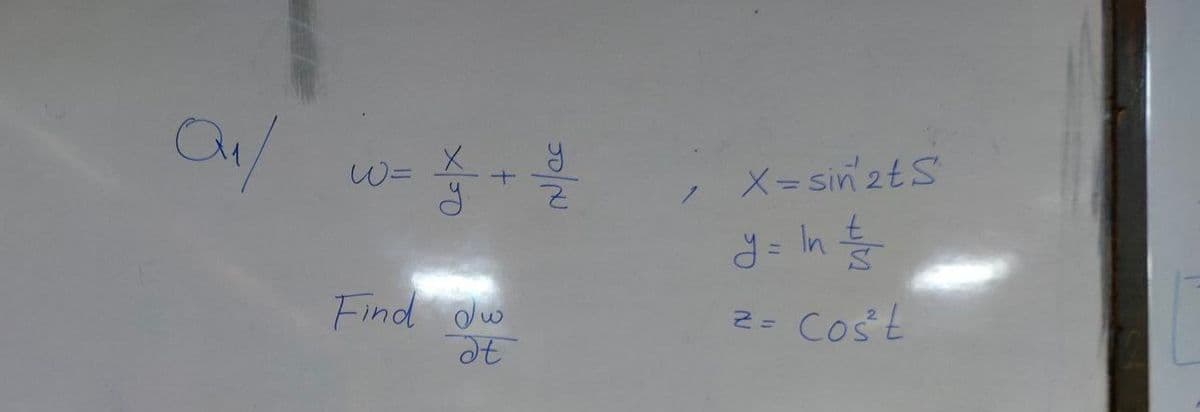 Q1/ w = x/y + y/z , x = sin⁻¹ 2ts
y = ln t/s
Find ∂w/∂t z = cos²t